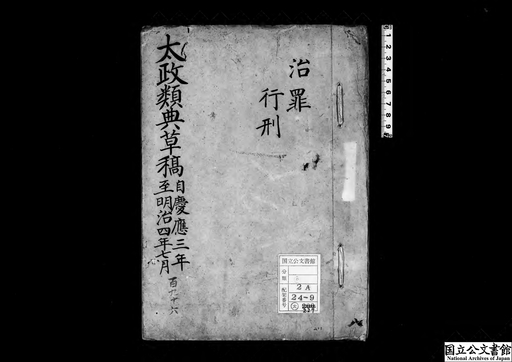 治罪
行刑
太政類典草稿
自慶應三年
至明治四年七月
百九十六
国立公文書館
分類
2A
配架番号
24~9
337
1 2 3 4 5 6 7 8 9
国立公文書館
National Archives of Japan